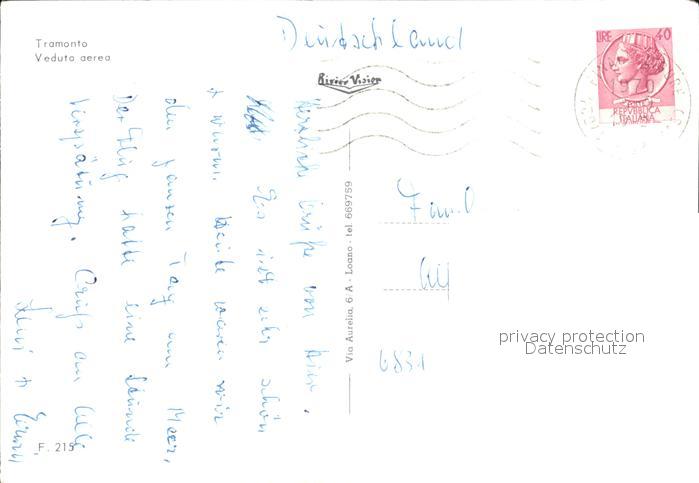 Tramonto
Veduta aerea
Deutschland
River Visior
LIRE 40
REPVBBLICA
ITALIANA
Herzliche Grüße von hier.
Es ist sehr schön
+ warm. Heute waren wir
den ganzen Tag am Meer,
Der Flug hatte eine Stunde
Verspätung. Gruß an alle
+
Via Aurelia, 6 A - Loano - tel. 669759
Fam.
6831
privacy protection
Datenschutz
F. 215